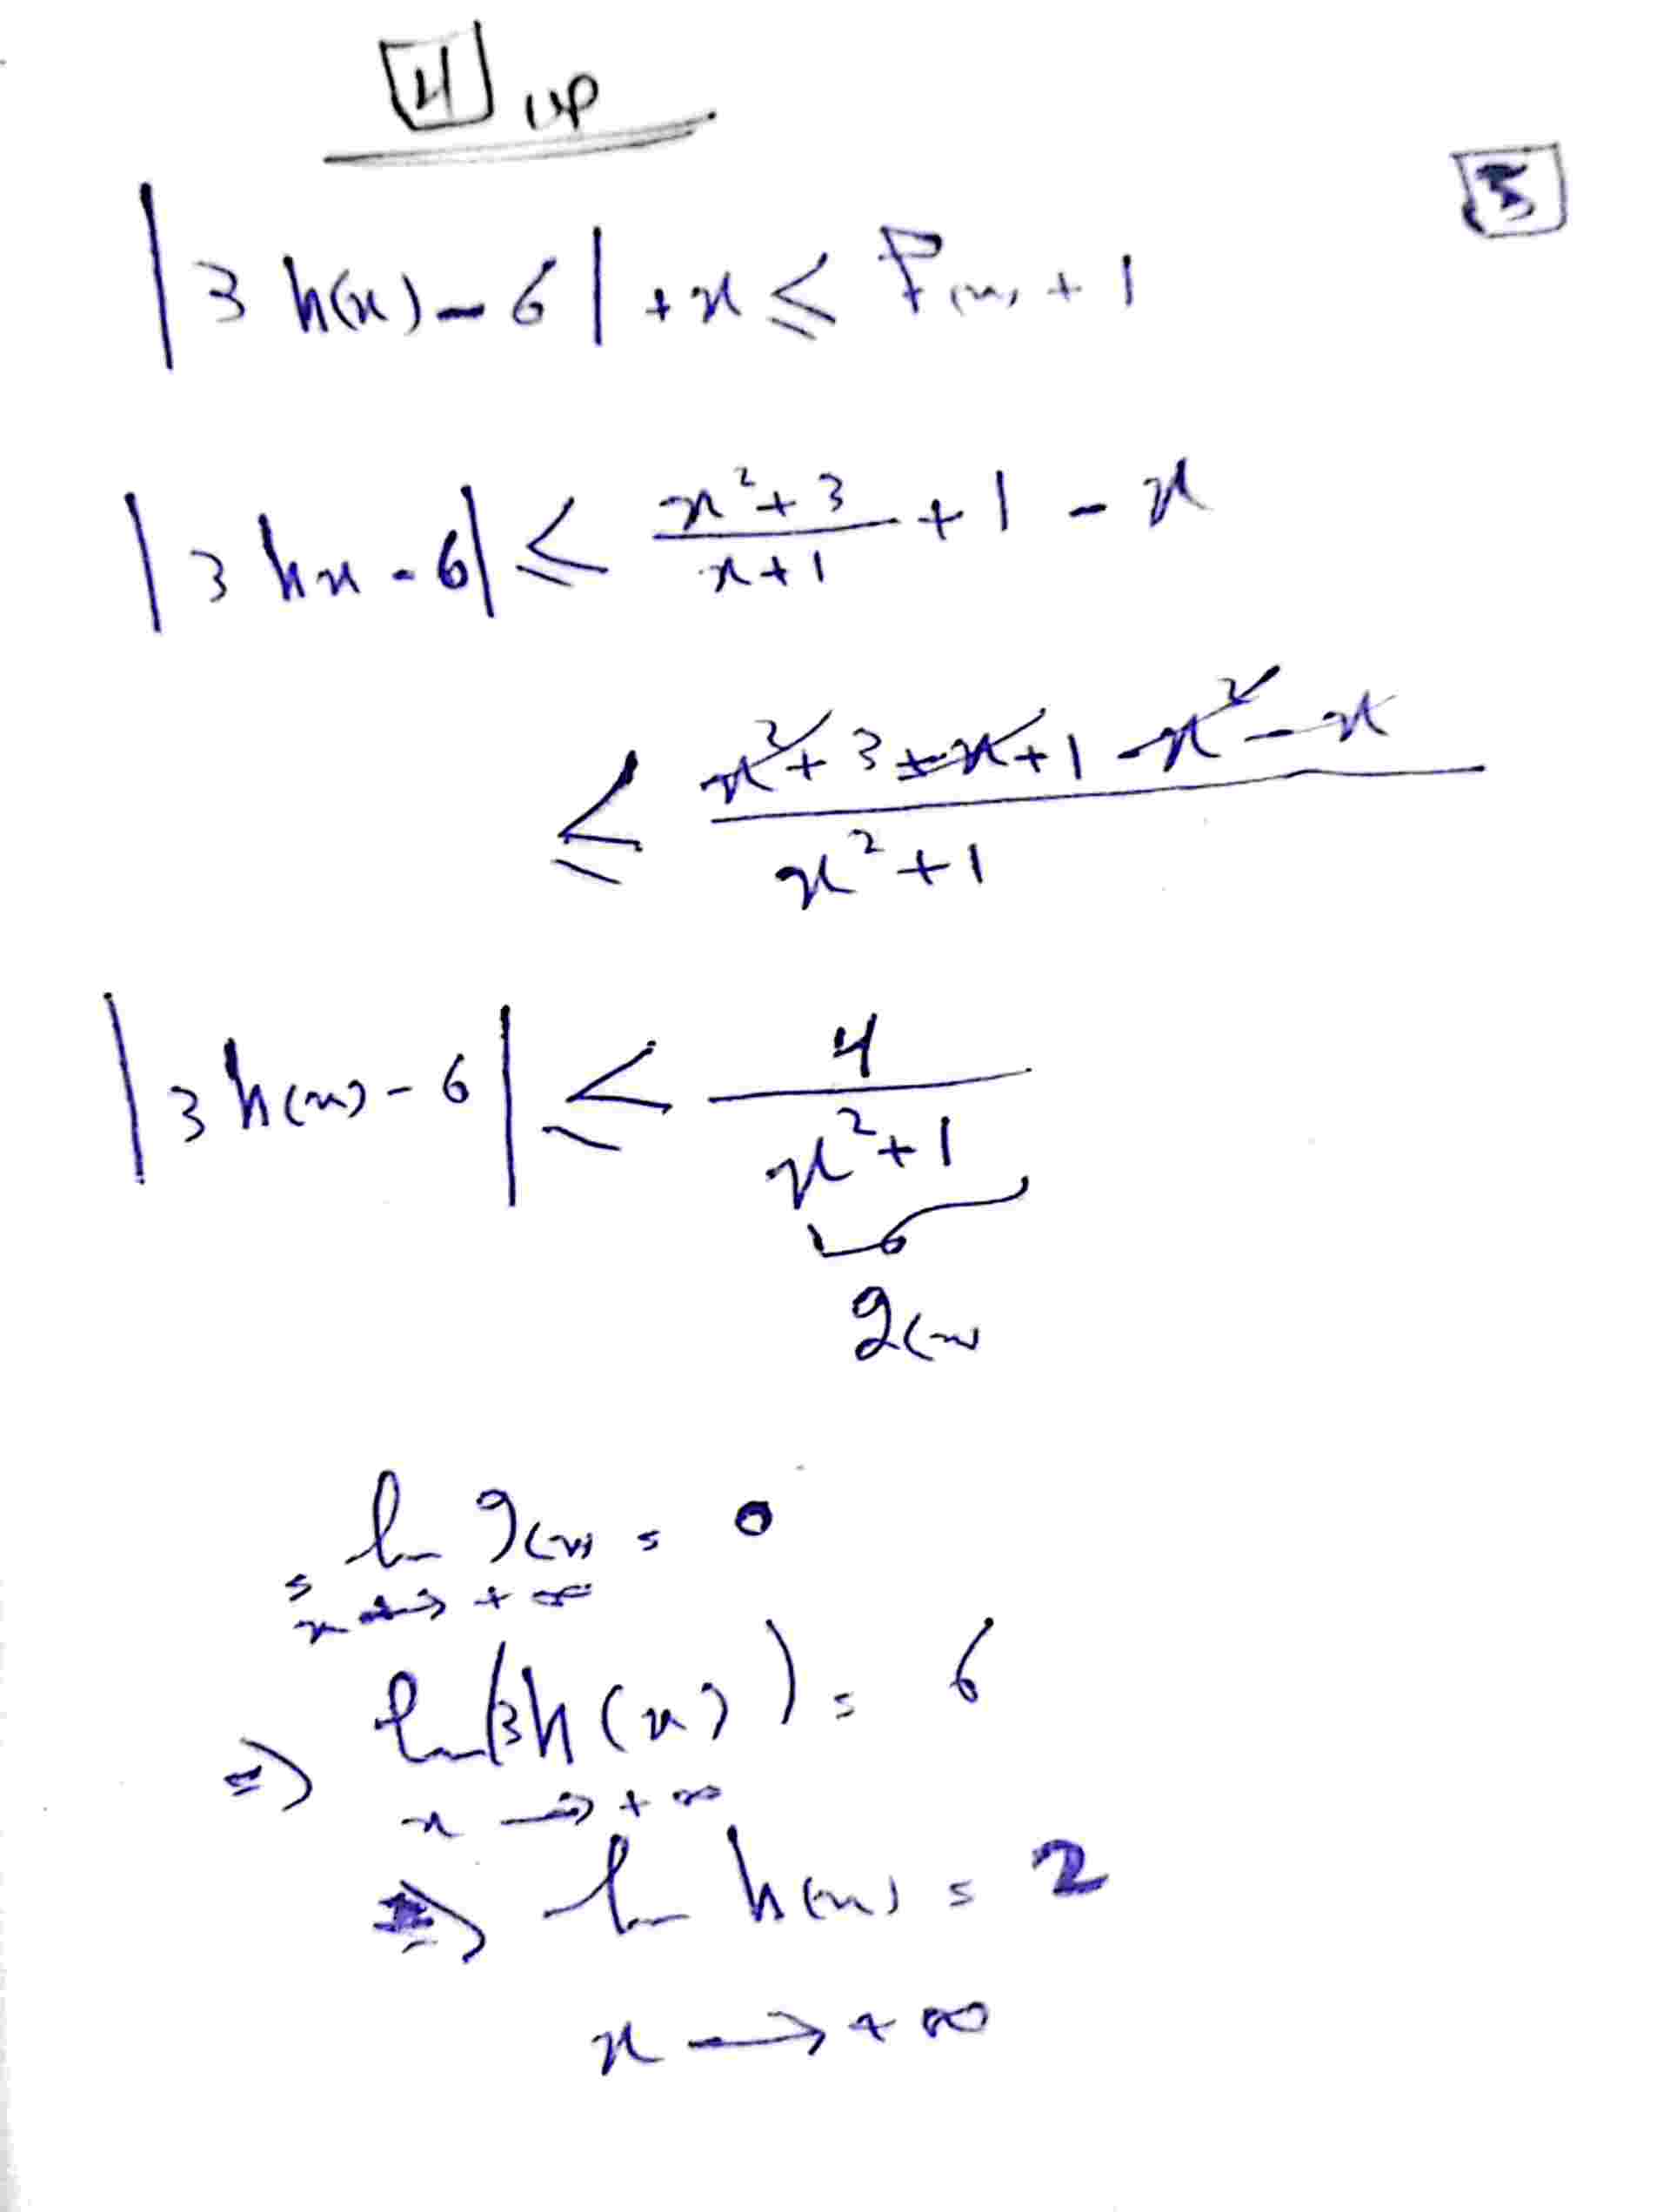 4 up
3
|3 h(x) - 6| + x ≤ F(x) + 1
|3 hx - 6| ≤ \frac{x² + 3}{x + 1} + 1 - x
≤ \frac{x² + 3 + x + 1 - x² - x}{x² + 1}
|3 h(x) - 6| ≤ \frac{4}{x² + 1}
g(x
lim g(x) = 0
x → +∞
⇒ lim(3h(x)) = 6
x → +∞
⇒ lim h(x) = 2
x → +∞